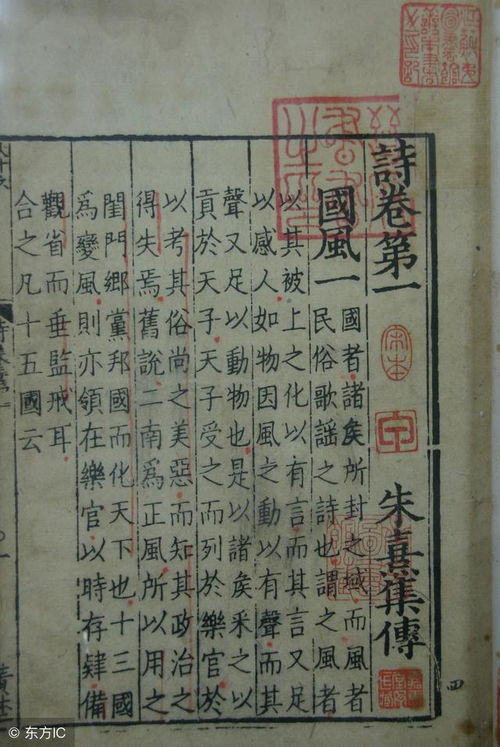 詩卷第一
宋本
朱熹集傳
國風一
國者諸矦所封之域而風者
民俗歌謠之詩也謂之風者
以其被上之化以有言而其言又足
以感人如物因風之動以有聲而其
聲又足以動物也是以諸矦采之以
貢於天子天子受之而列於樂官於
以考其俗尚之美惡而知其政治之
得失焉舊說二南爲正風所以用之
閨門鄉黨邦國而化天下也十三國
爲變風則亦領在樂官以時存肄備
觀省而垂監戒耳
合之凡十五國云
四
© 东方IC